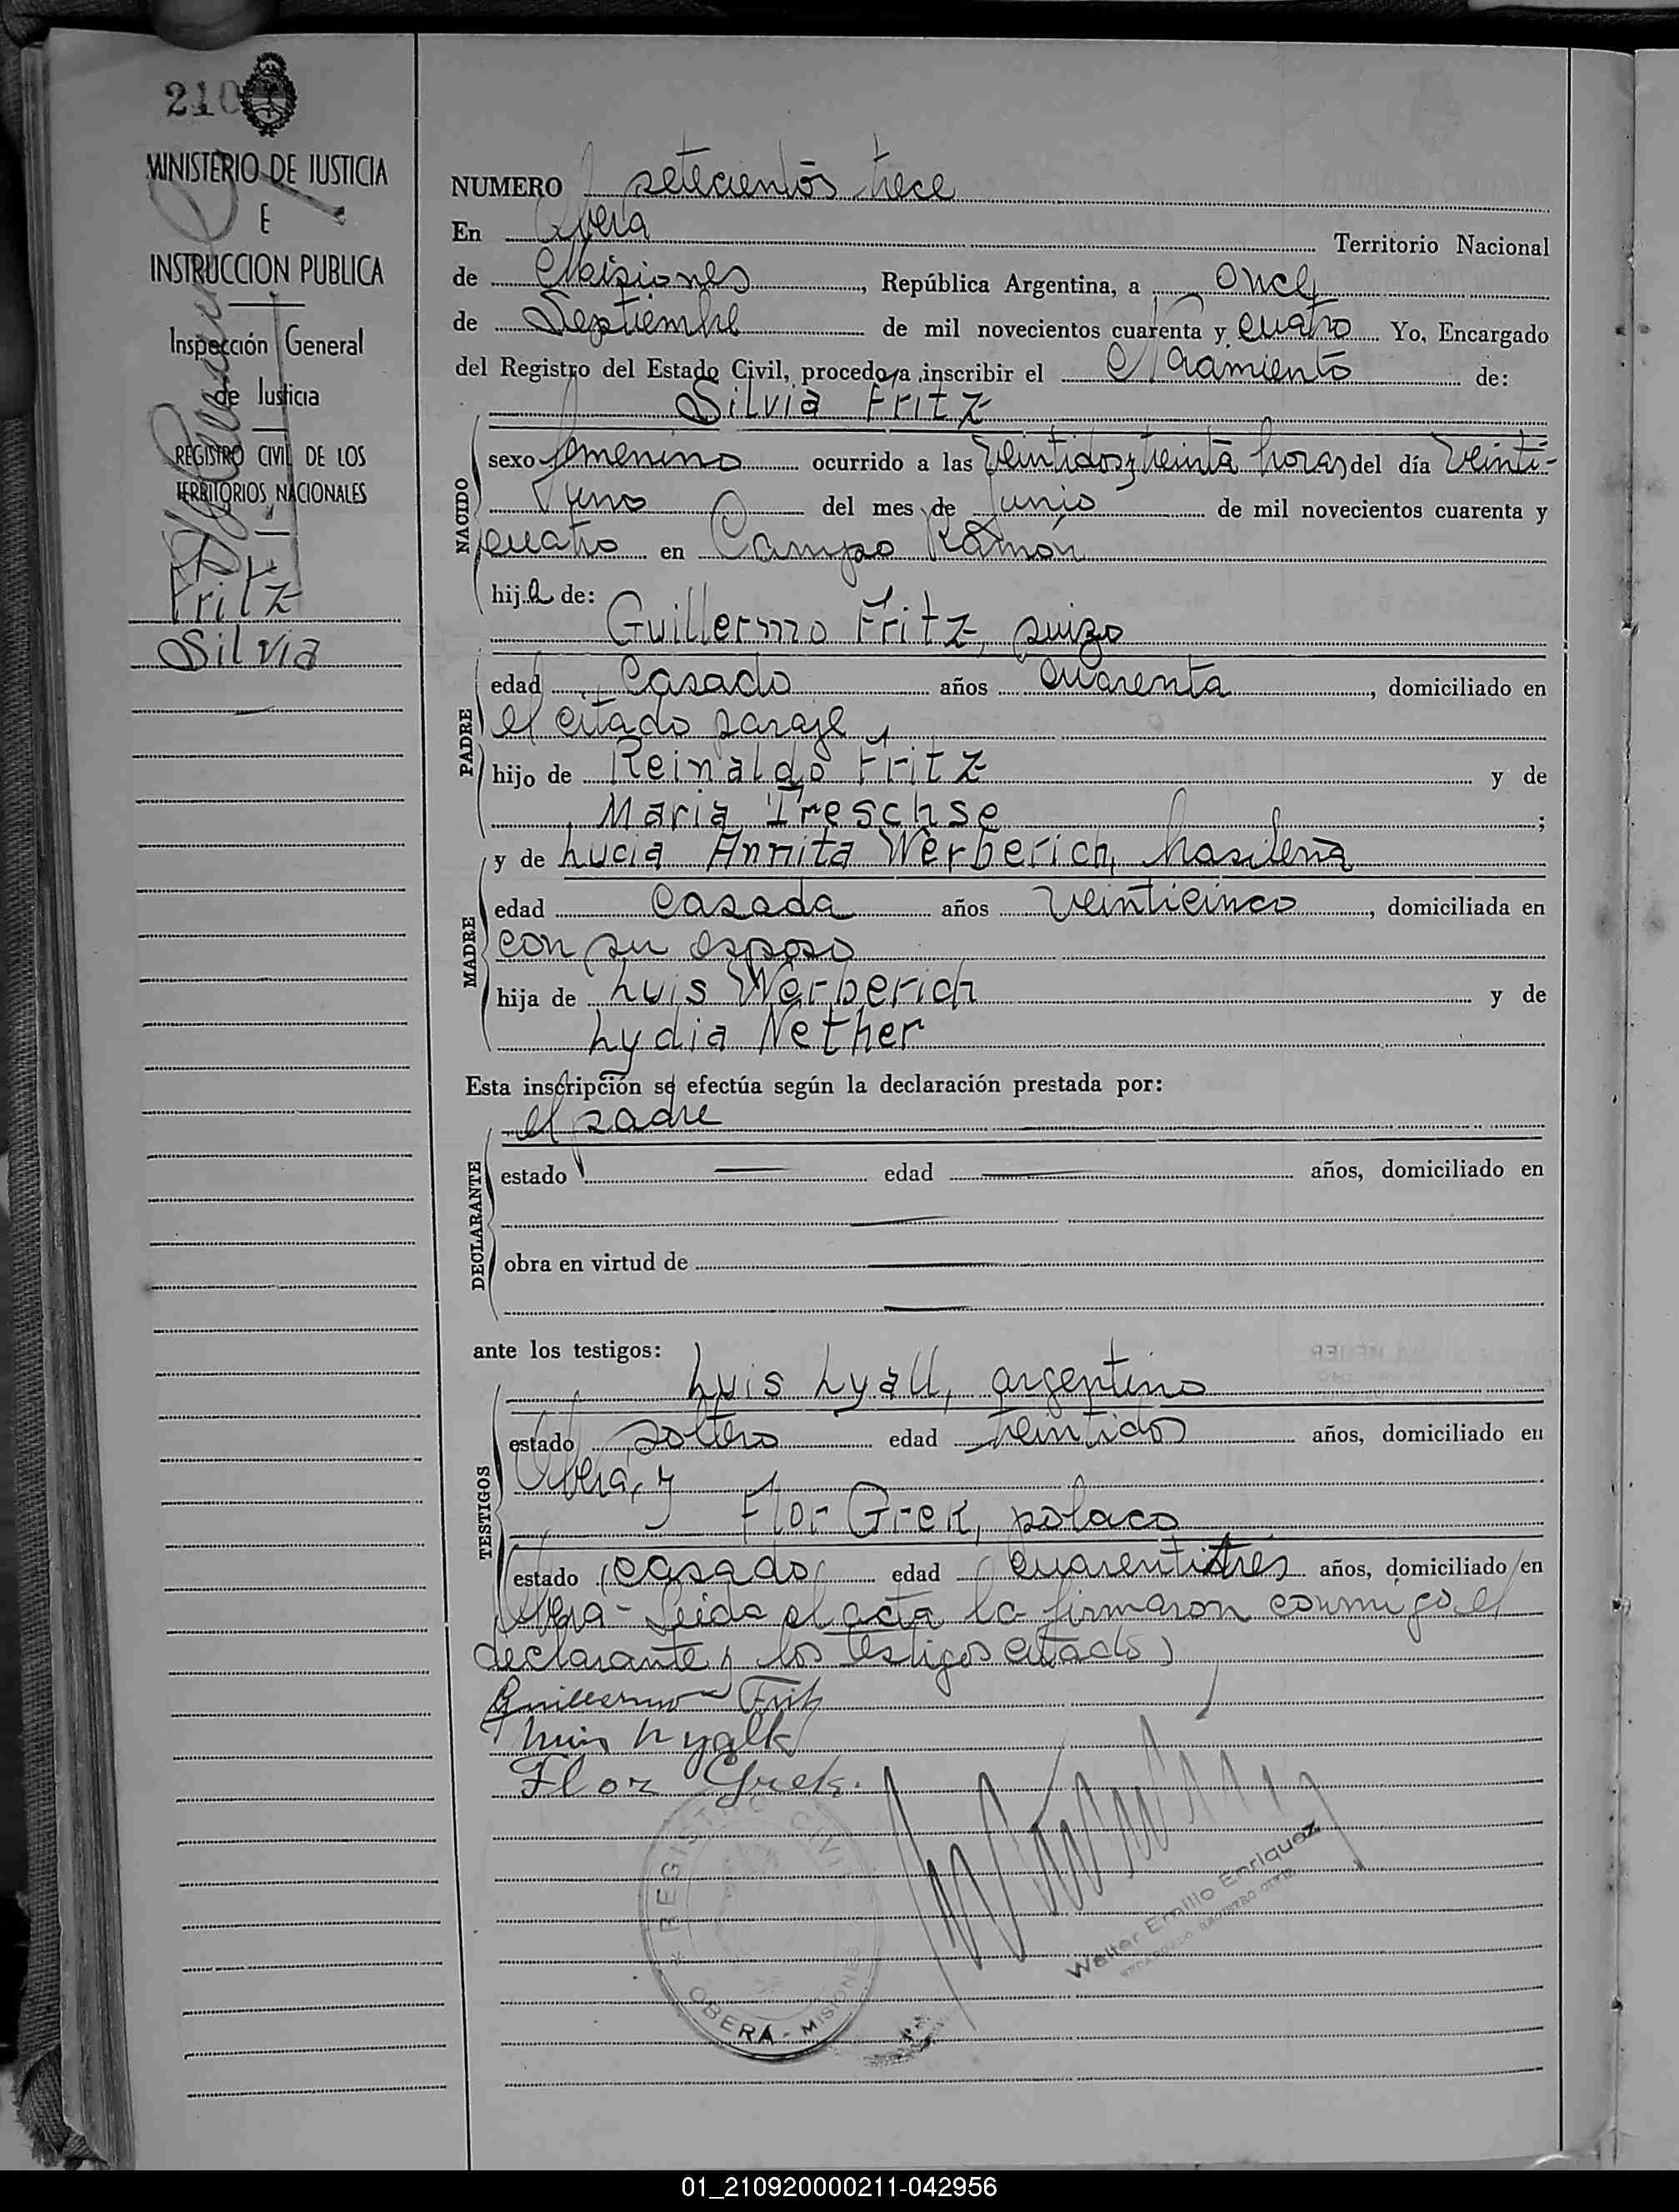 210
MINISTERIO DE JUSTICIA
E
INSTRUCCION PUBLICA
Inspección General
de Justicia
REGISTRO CIVIL DE LOS
TERRITORIOS NACIONALES
Fritz
Silvia
NUMERO setecientos trece
En Oberá Territorio Nacional
de Misiones, República Argentina, a once
de Septiembre de mil novecientos cuarenta y cuatro Yo, Encargado
del Registro del Estado Civil, procedo a inscribir el Nacimiento de:
Silvia Fritz
NACIDO
sexo femenino ocurrido a las veintidos y treinta horas del día veinti-
uno del mes de Junio de mil novecientos cuarenta y
cuatro en Campo Ramón
hija de:
Guillermo Fritz, suizo
PADRE
edad casado años cuarenta, domiciliado en
el citado paraje,
hijo de Reinaldo Fritz y de
Maria Treschse;
y de Lucia Annita Werberich, brasileña
MADRE
edad casada años veinticinco, domiciliada en
con su esposo
hija de Luis Werberich y de
Lydia Nether
Esta inscripción se efectúa según la declaración prestada por:
el padre
DECLARANTE
estado — edad — años, domiciliado en
obra en virtud de —
ante los testigos:
Luis Lyall, argentino
TESTIGOS
estado soltero edad veintidos años, domiciliado en
Oberá, y
Flor Grek, polaco
estado casado edad cuarentitres años, domiciliado en
Oberá - Leida el acta la firmaron conmigo el
declarante y los testigos citados
Guillermo Fritz
Luis Lyall
Flor Grek.
REGISTRO CIVIL
OBERA - MISIONES
Walter Emilio Enriquez
01_210920000211-042956